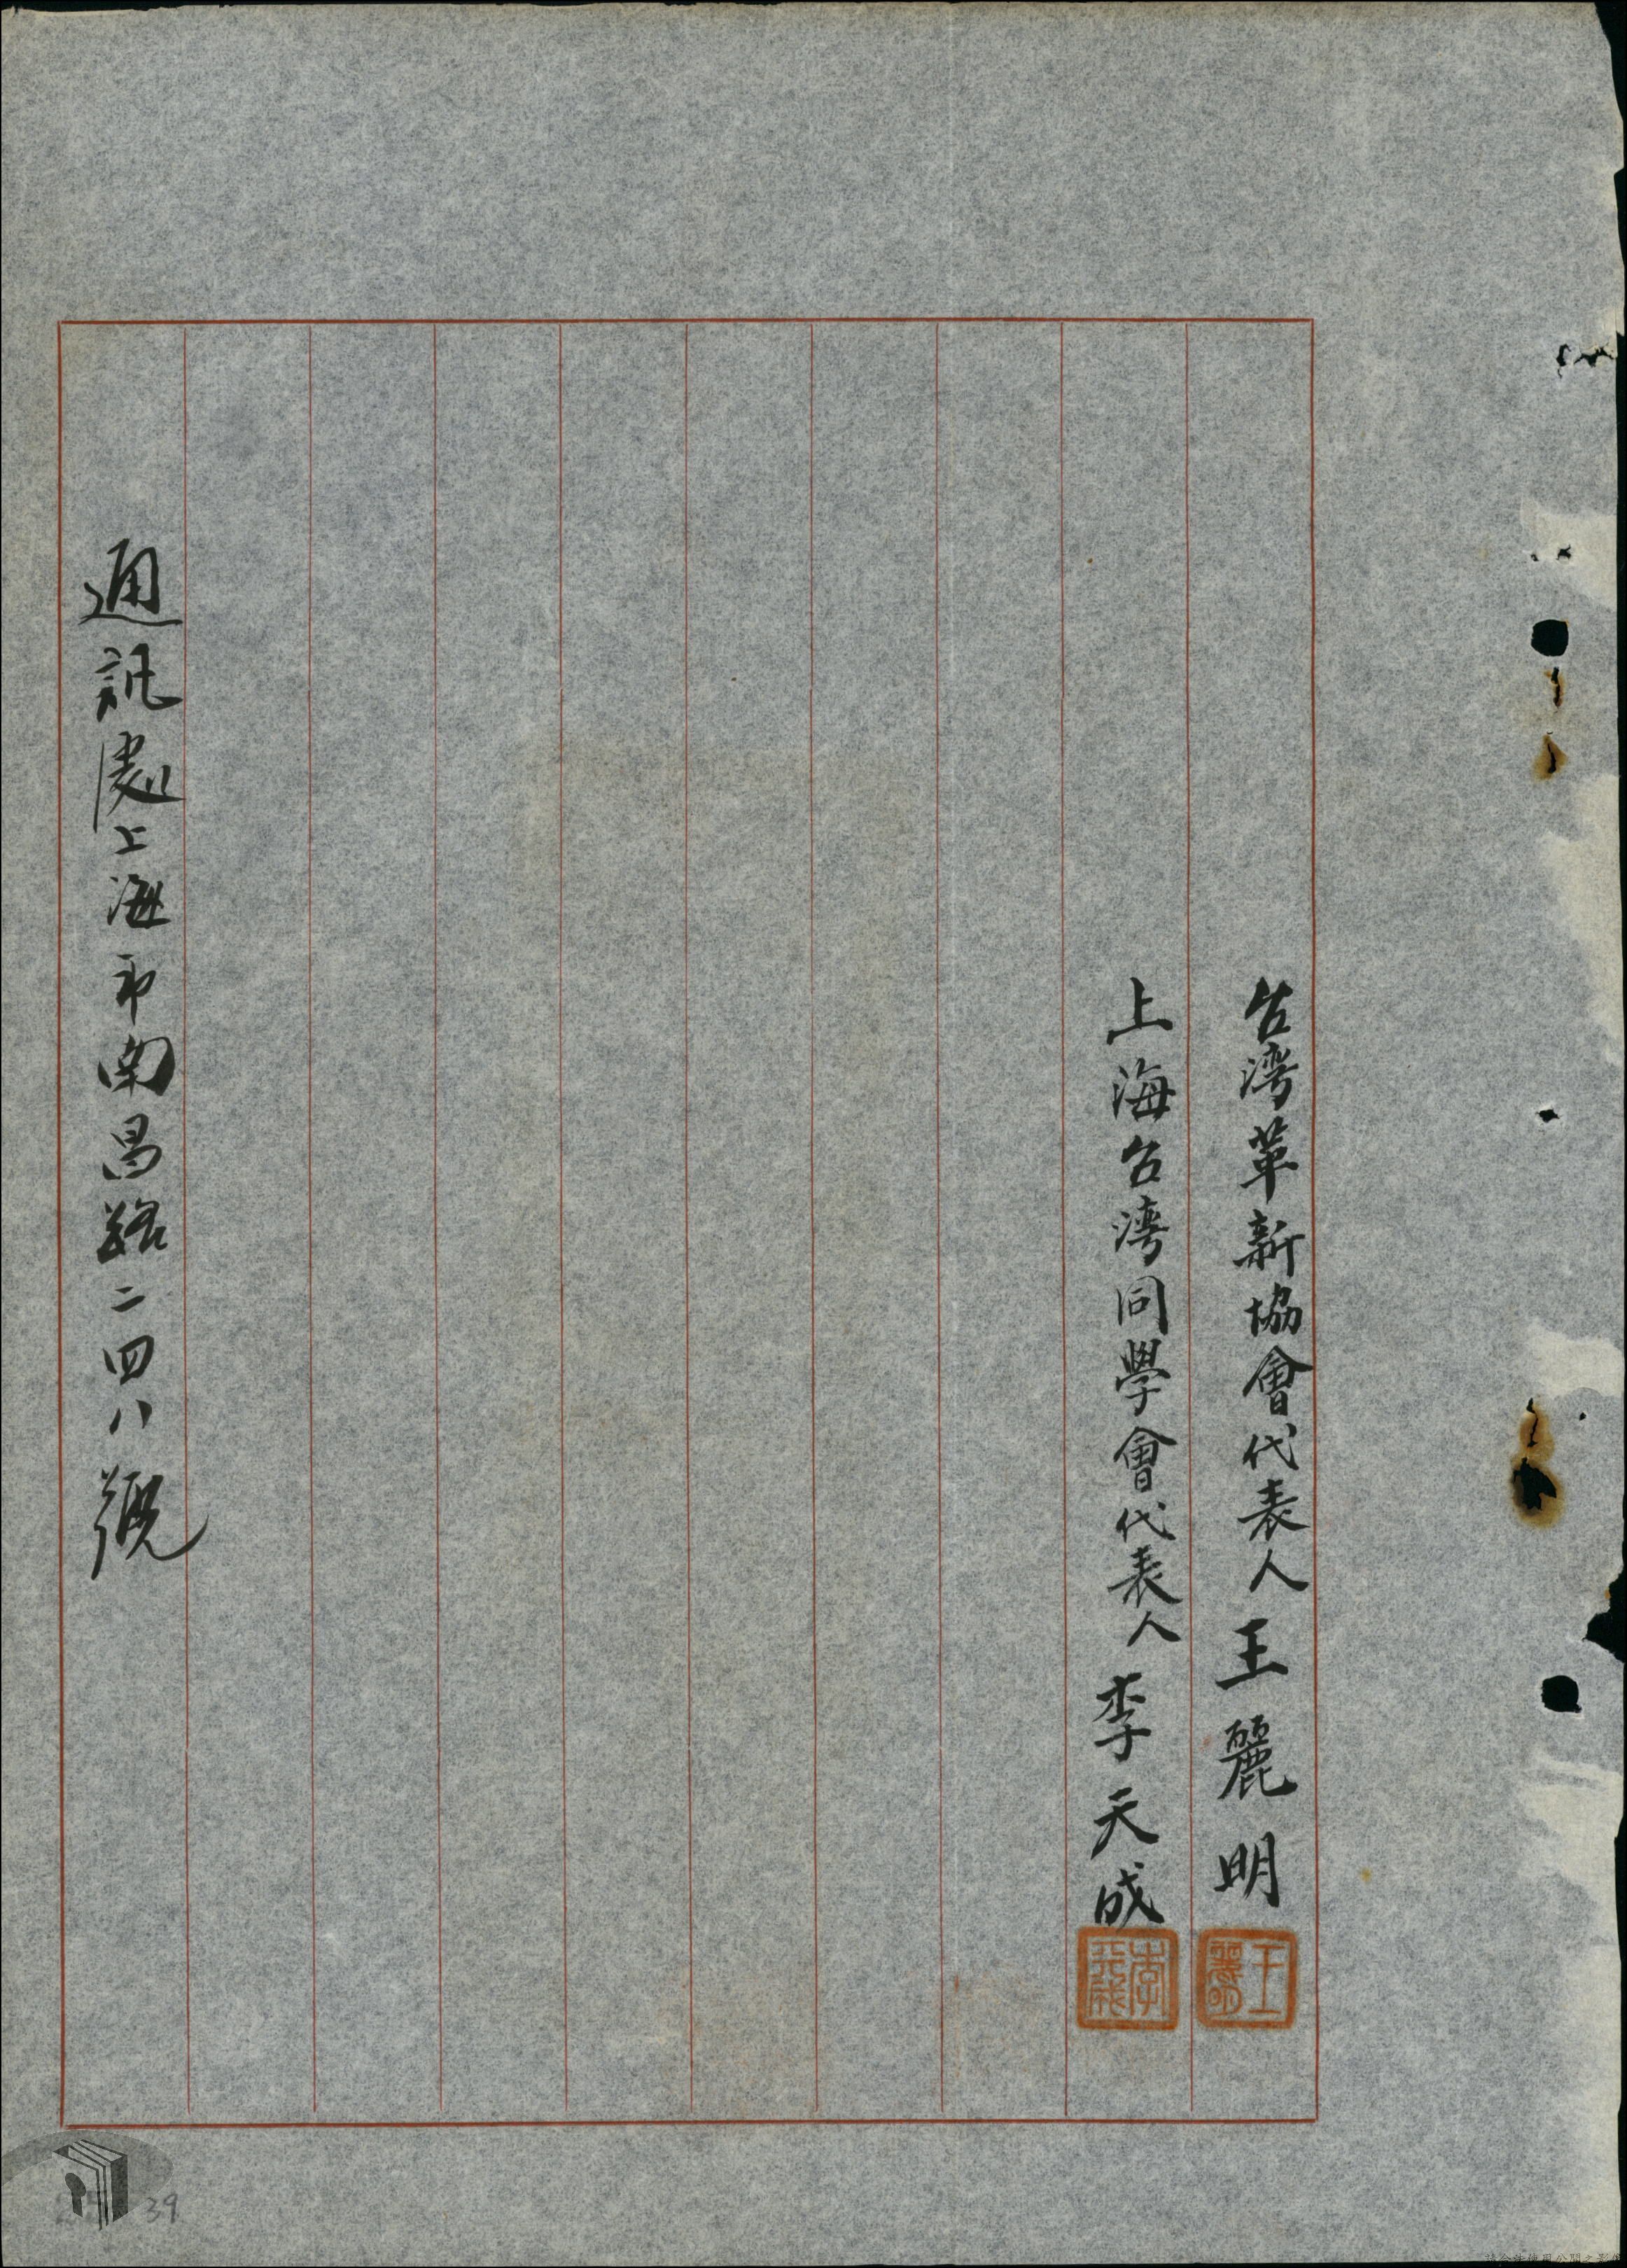 台湾革新協會代表人王麗明
王麗明
上海台湾同學會代表人李天成
通訊處上海市南昌路二四八號
39